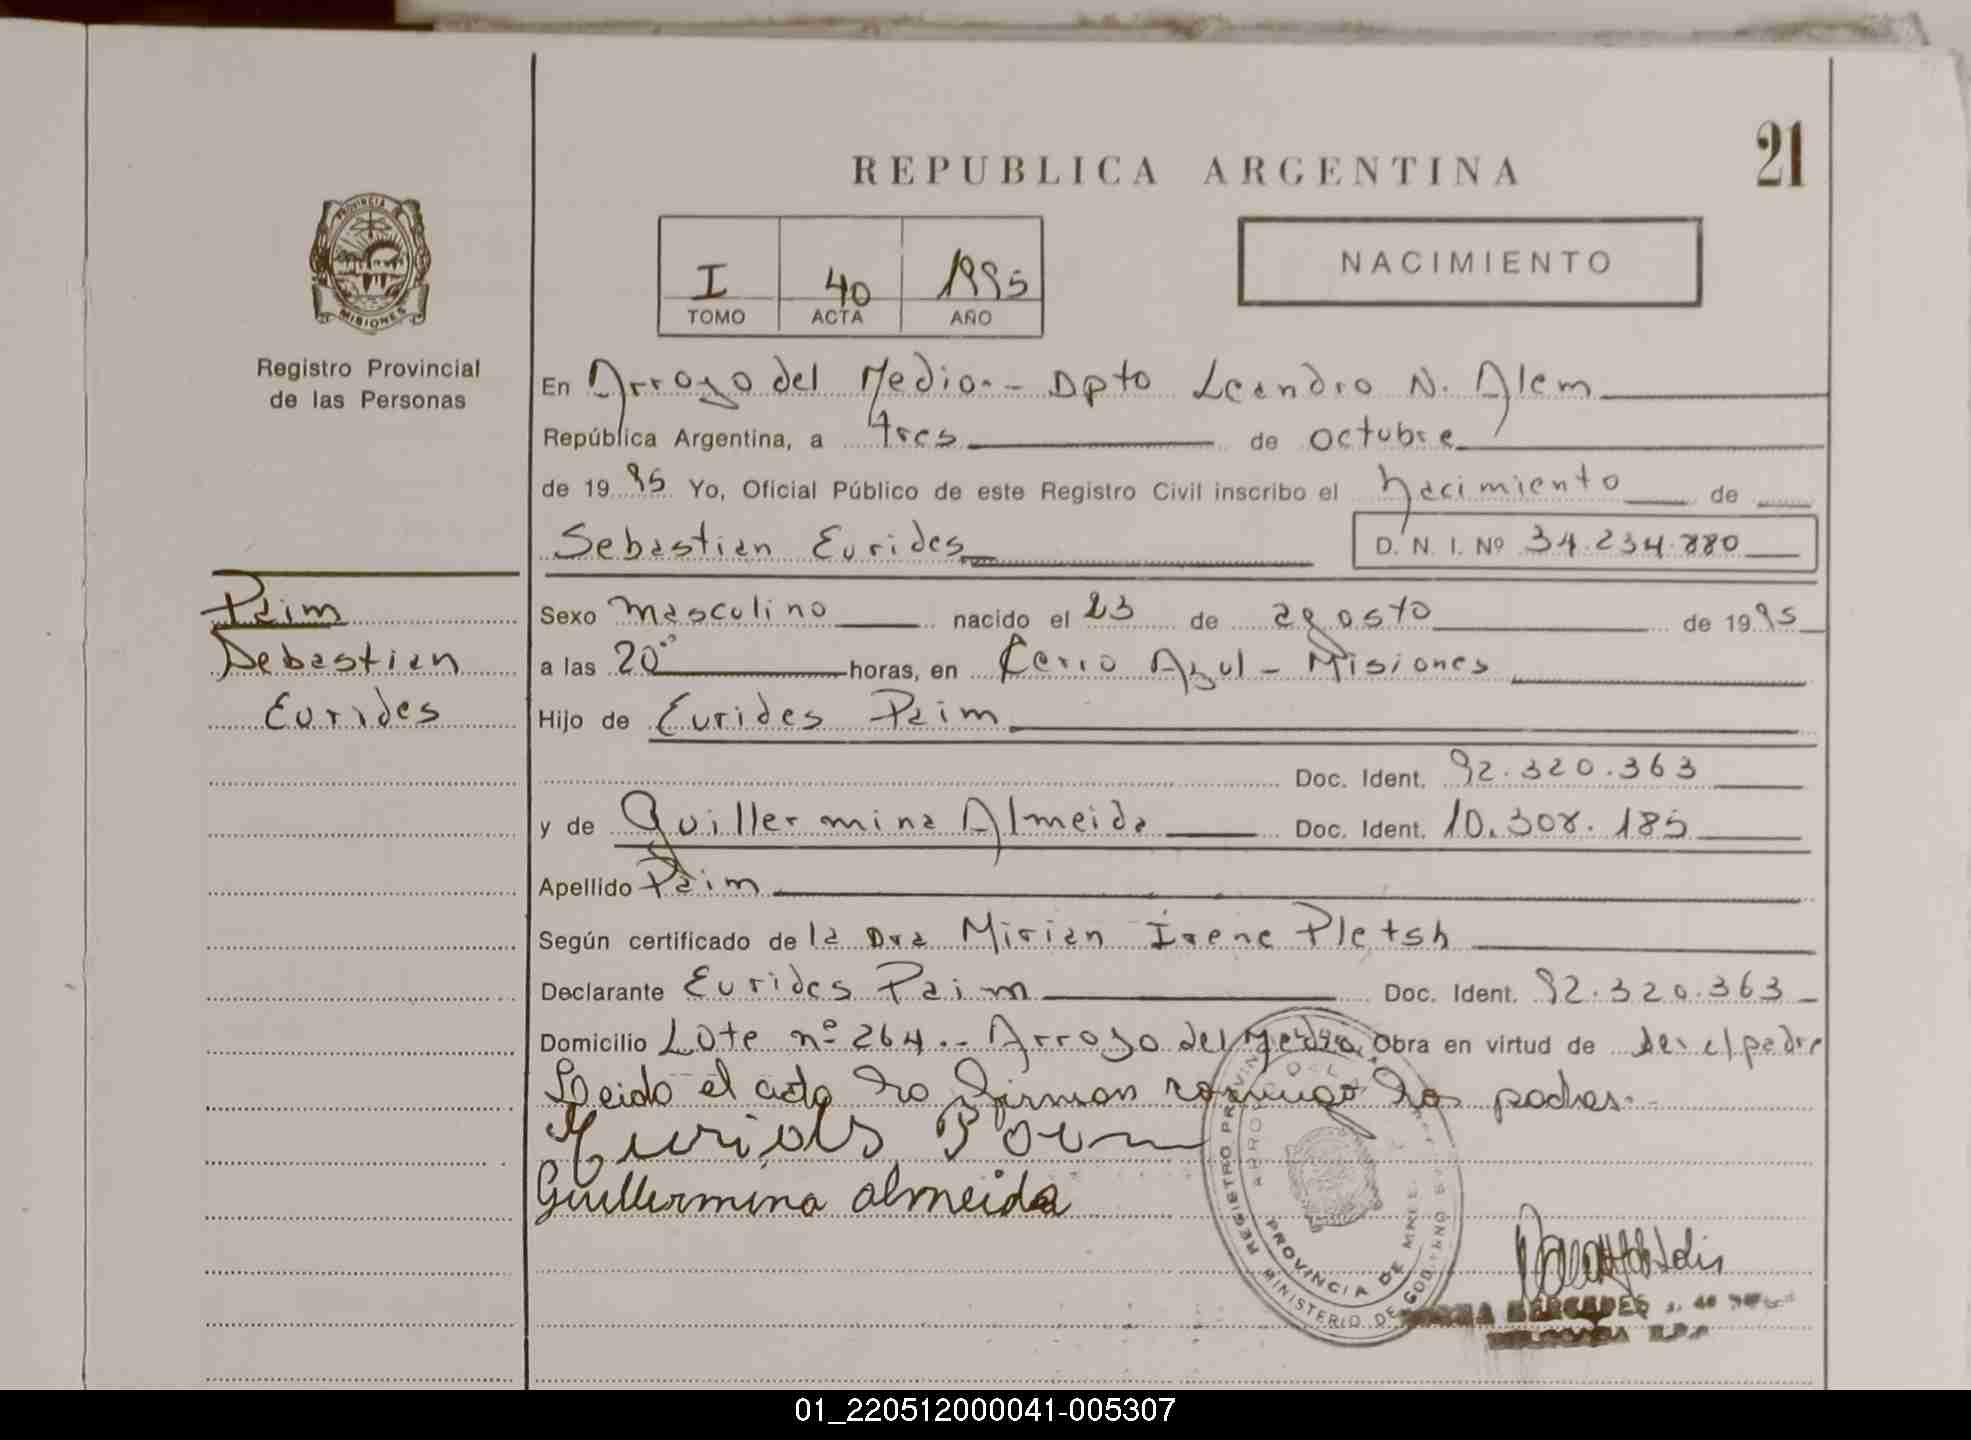 21
REPUBLICA ARGENTINA
PROVINCIA DE
MISIONES
Registro Provincial
de las Personas
I 40 1995
TOMO ACTA AÑO
NACIMIENTO
En Arroyo del Medio.- Dpto Leandro N. Alem
República Argentina, a tres de octubre
de 1995 Yo, Oficial Público de este Registro Civil inscribo el nacimiento de
Sebastian Eurides
D. N. I. Nº 34.234.880
Paim
Sebastian
Eurides
Sexo masculino nacido el 23 de agosto de 1995
a las 20°° horas, en Cerro Azul - Misiones
Hijo de Eurides Paim
Doc. Ident. 92.320.363
y de Guillermina Almeida Doc. Ident. 10.308.185
Apellido Paim
Según certificado de la Dra Mirian Irene Pletsh
Declarante Eurides Paim Doc. Ident. 92.320.363
Domicilio Lote nº 264.- Arroyo del Medio. Obra en virtud de ser el padre
Leido el acta lo firman conmigo los padres.-
Eurides Paim
Guillermina almeida
REGISTRO PROVINCIAL DE LA
PROVINCIA DE
MINISTERIO DE GOBIERNO
MERCEDES
01_220512000041-005307